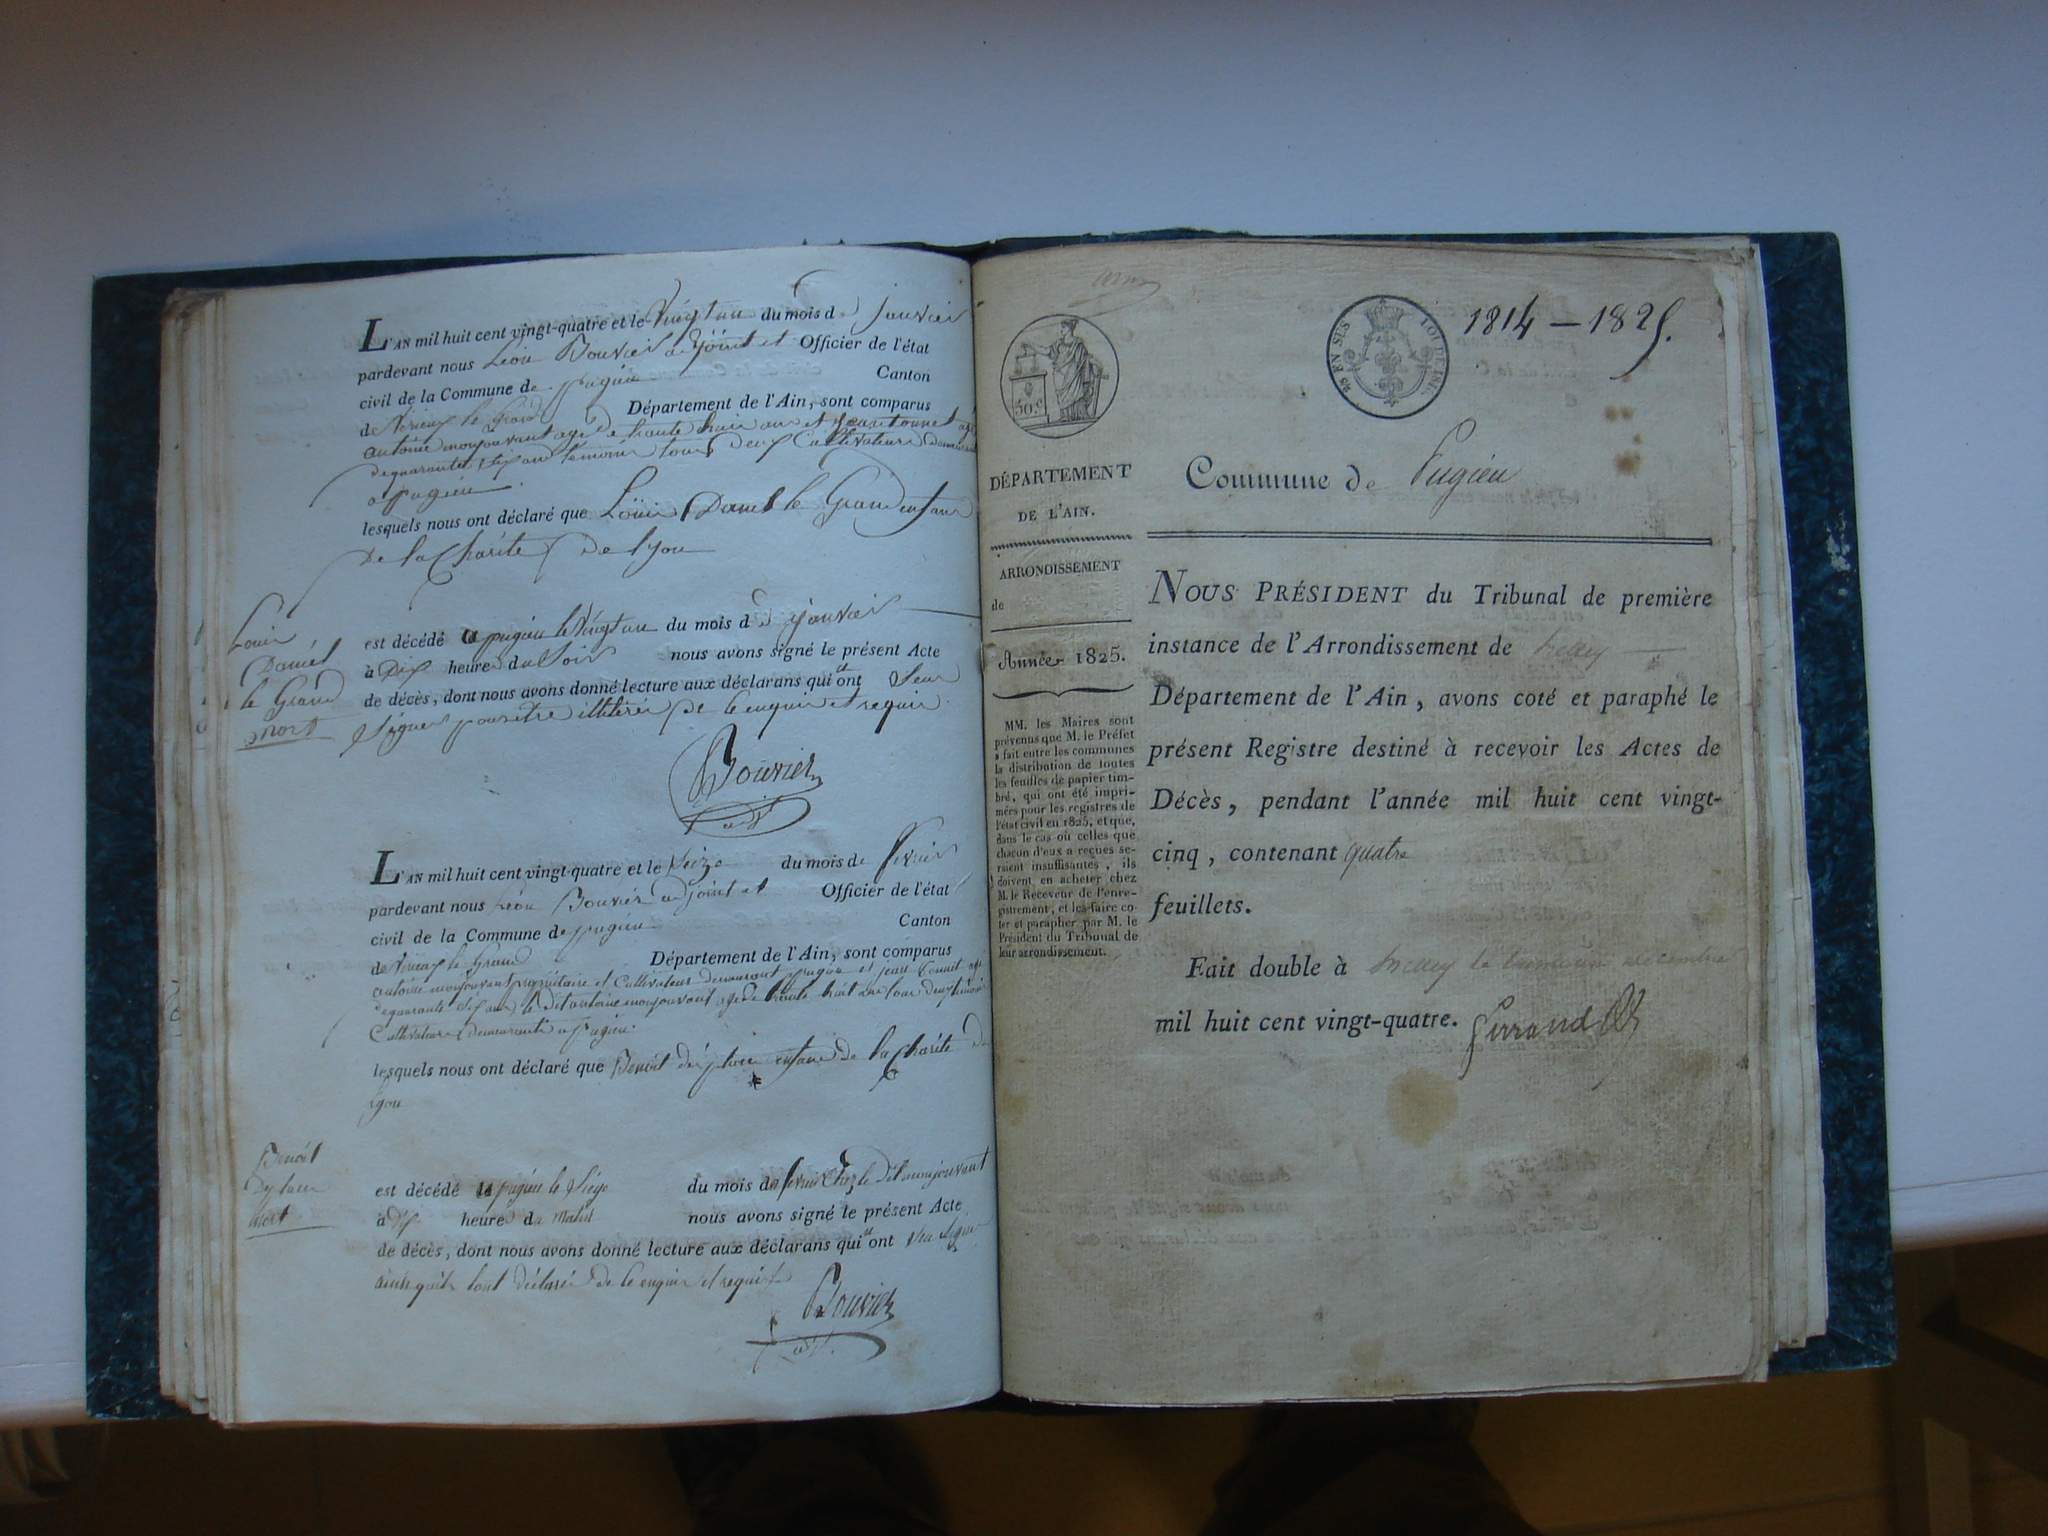 L'AN mil huit cent vingt-quatre et le vingt un du mois de janvier
pardevant nous Léon Bouvier adjoint et Officier de l'état
civil de la Commune de pugieu Canton
de virieux le Grand Département de l'Ain, sont comparus
antoine monjouvant agé de trante huit ans et jean tonnet agé
de quarante six ans temoins tous deux Cultivateurs demeurant
a pugieu
lesquels nous ont déclaré que Louis Daniel le Grand enfant
de la Charité de Lyon
Louis
Daniel
le Grand
mort
est décédé a pugieu le vingt un du mois de janvier
à Dix heures du Soir nous avons signé le présent Acte
de décès, dont nous avons donné lecture aux déclarans qui ont
Signer pour être illitéré de ce enquis et requis
Bouvier
adj.
L'AN mil huit cent vingt-quatre et le seize du mois de fevrier
pardevant nous Léon Bouvier adjoint et Officier de l'état
civil de la Commune de pugieu Canton
de virieux le Grand Département de l'Ain, sont comparus
antoine monjouvant propriétaire et Cultivateur demeurant a pugieu et jean tonnet agé
de quarante six ans le dit antoine monjouvant agé de trente huit ans tous deux temoins
Cultivateurs demeurants a pugieu
lesquels nous ont déclaré que Benoit enfant de la Charité de
Lyon
Benoit
mort
est décédé a pugieu le Siege du mois de fevrier Chez le dit monjouvant
à dix heures du Matin nous avons signé le présent Acte
de décès, dont nous avons donné lecture aux déclarans qui ont
ainsi qu'ils l'ont déclaré de ce enquis et requis
Bouvier
adj.
1814 — 1825.
25 EN SUS
LOI DE 1816
50.c
DÉPARTEMENT
DE L'AIN.
ARRONDISSEMENT
de
Année 1825.
MM. les Maires sont
prévenus que M. le Préfet
a fait entre les communes
la distribution de toutes
les feuilles de papier tim-
bré, qui ont été impri-
mées pour les registres de
l'état civil en 1825, et que,
dans le cas où celles que
chacun d'eux a reçues se-
raient insuffisantes, ils
doivent en acheter chez
M. le Receveur de l'enre-
gistrement, et les faire co-
ter et parapher par M. le
Président du Tribunal de
leur arrondissement.
Commune de Pugieu
NOUS PRÉSIDENT du Tribunal de première
instance de l'Arrondissement de Belley
Département de l'Ain, avons coté et paraphé le
présent Registre destiné à recevoir les Actes de
Décès, pendant l'année mil huit cent vingt-
cinq, contenant quatre
feuillets.
Fait double à Belley le décembre
mil huit cent vingt-quatre.